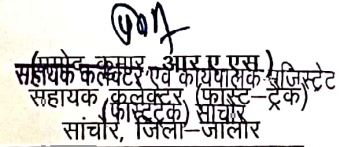 (प्रमोद कुमार आर ए एस)
सहायक कलेक्टर एवं कार्यपालक मजिस्ट्रेट
सहायक कलेक्टर (फास्ट-ट्रेक)
(फास्टट्रेक) सांचौर
सांचौर, जिला-जालोर